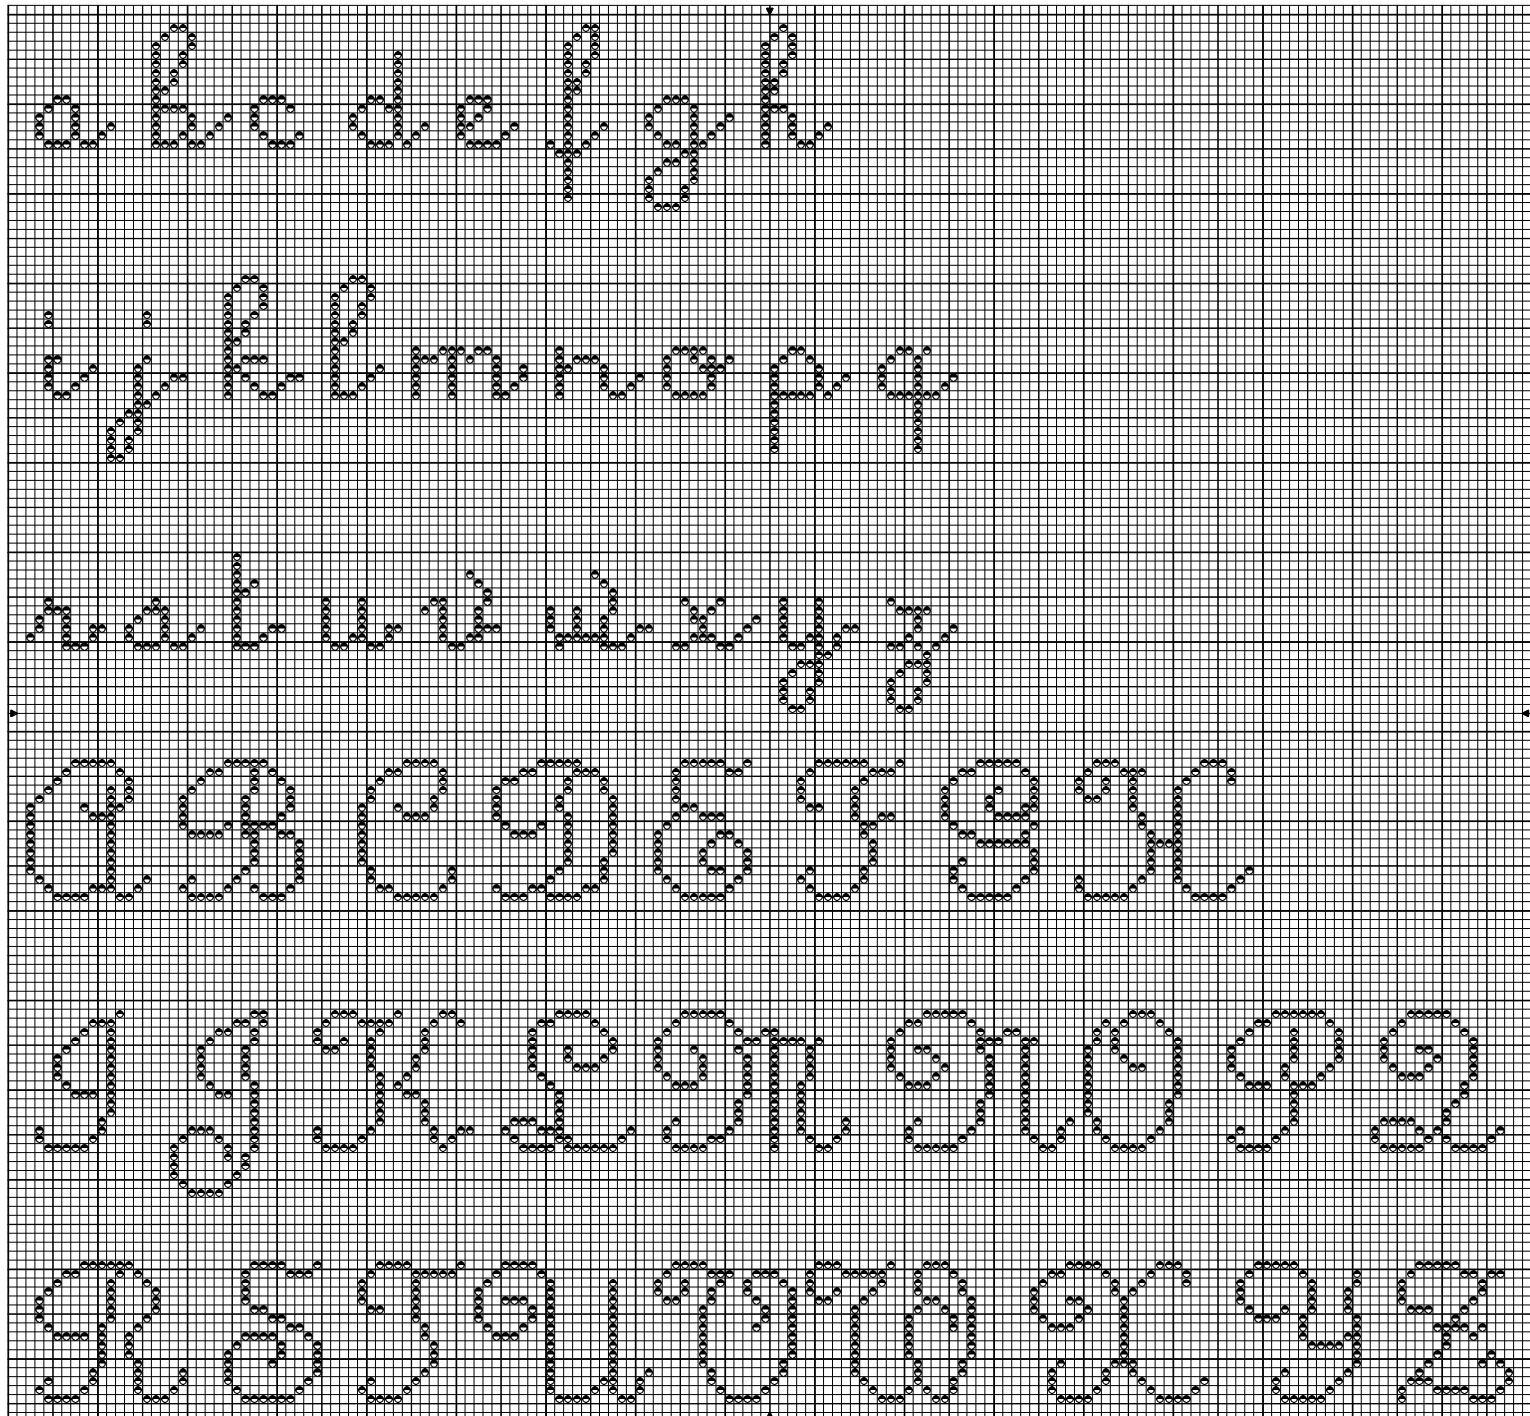 a b c d e f g h
i j k l m n o p q
r s t u v w x y z
A B C D E F G H
I J K L M N O P Q
R S T U V W X Y Z